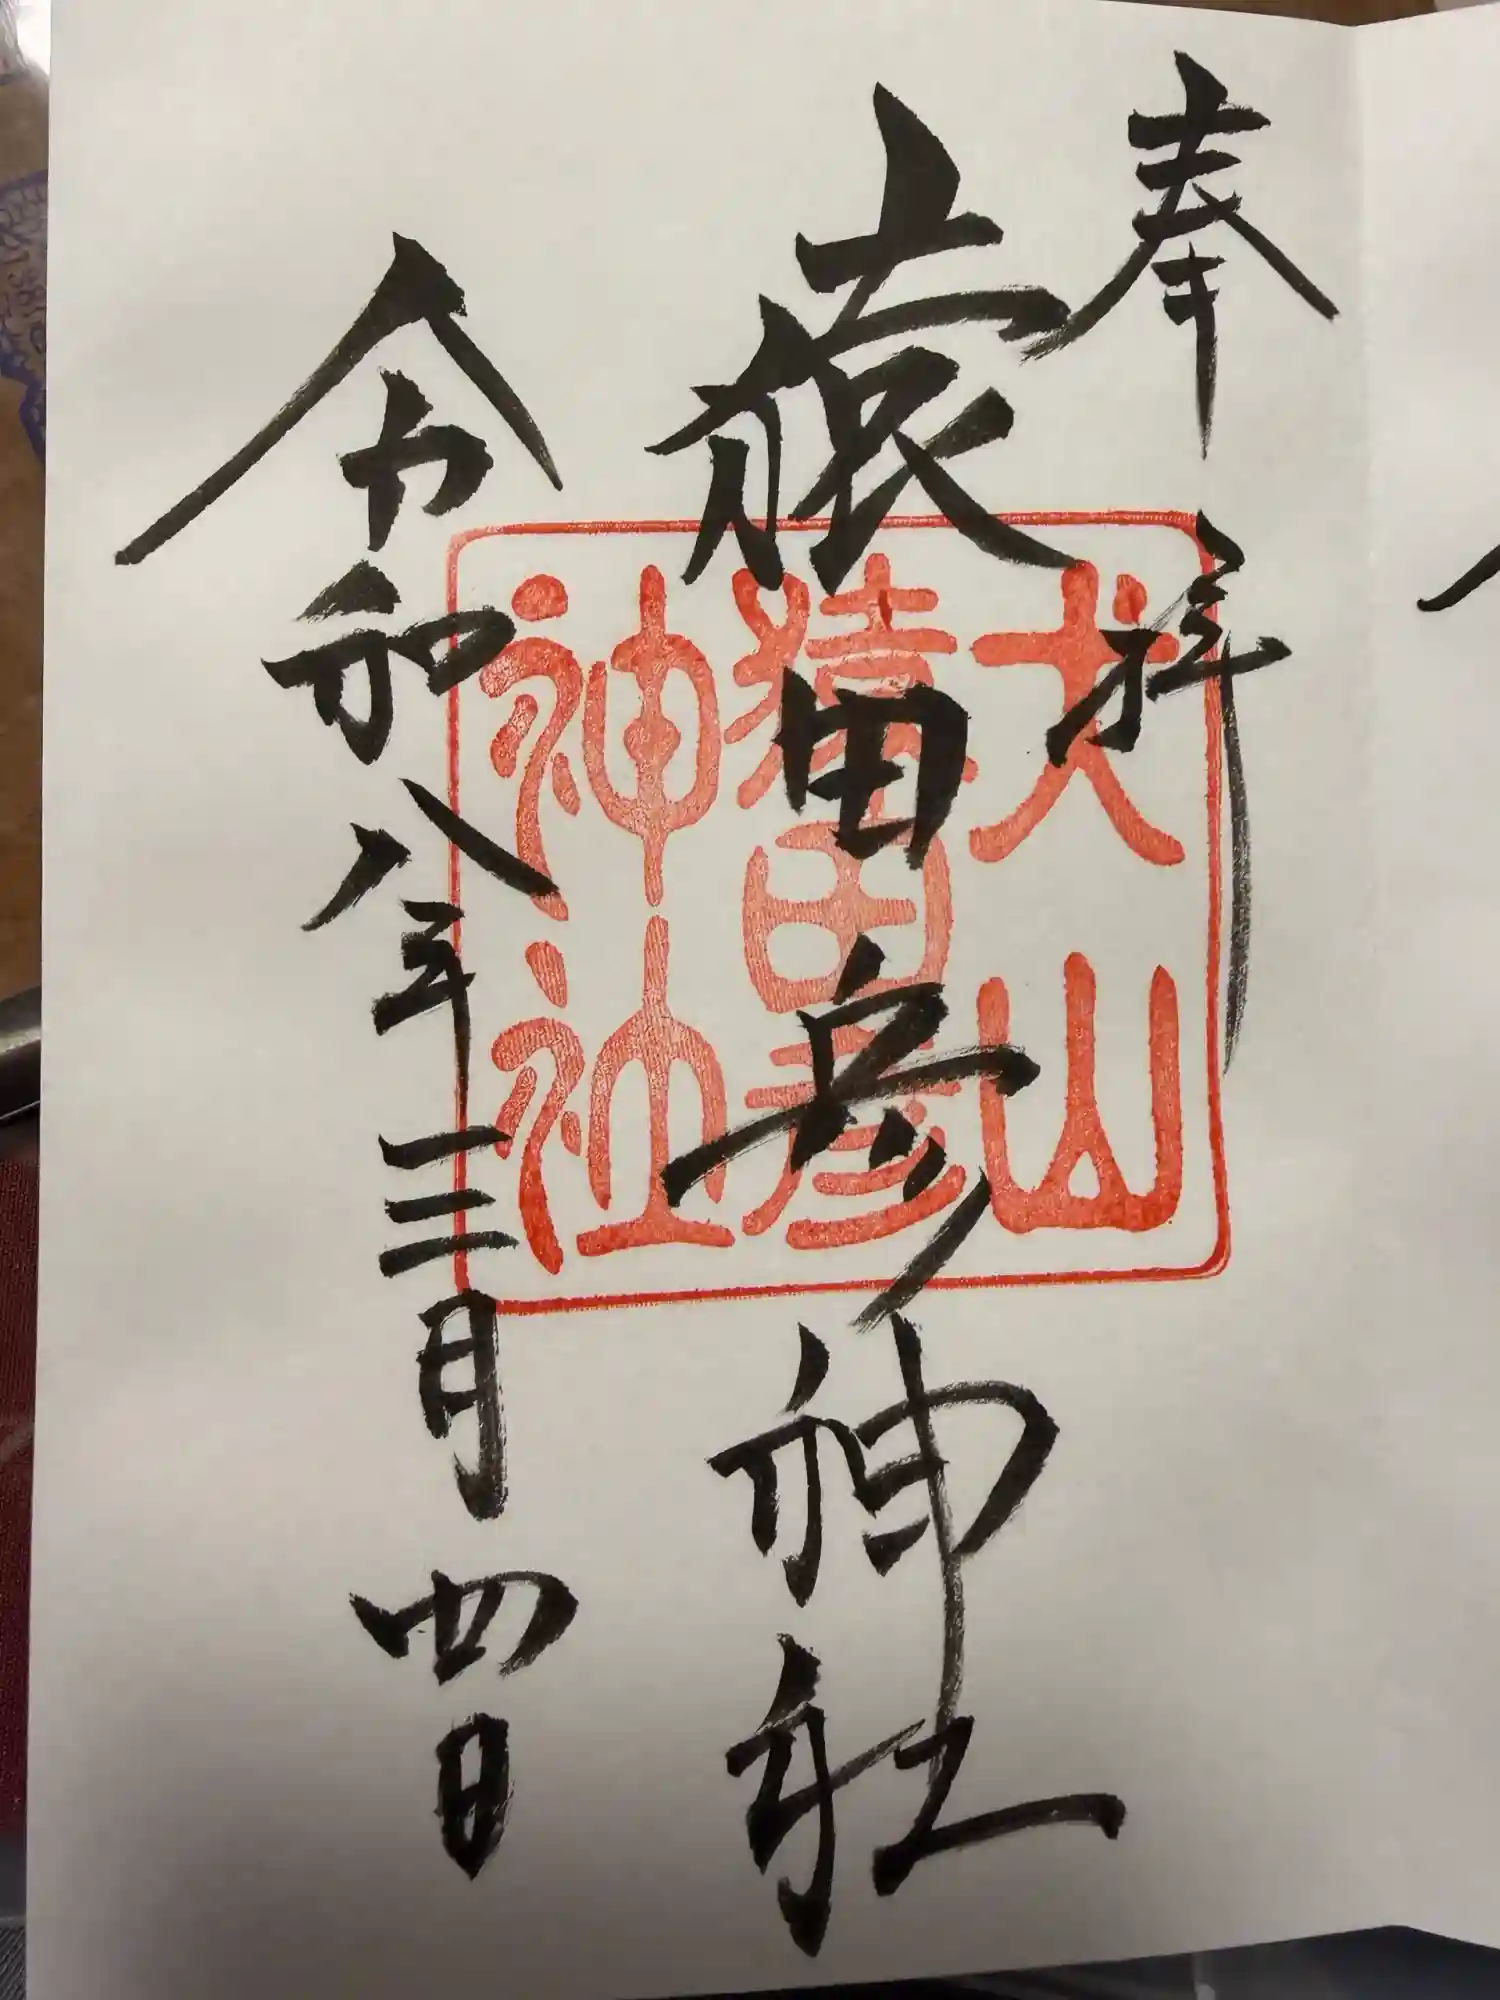 奉拝
猿田彦神社
令和八年三月四日
犬山
猿田彦
神社